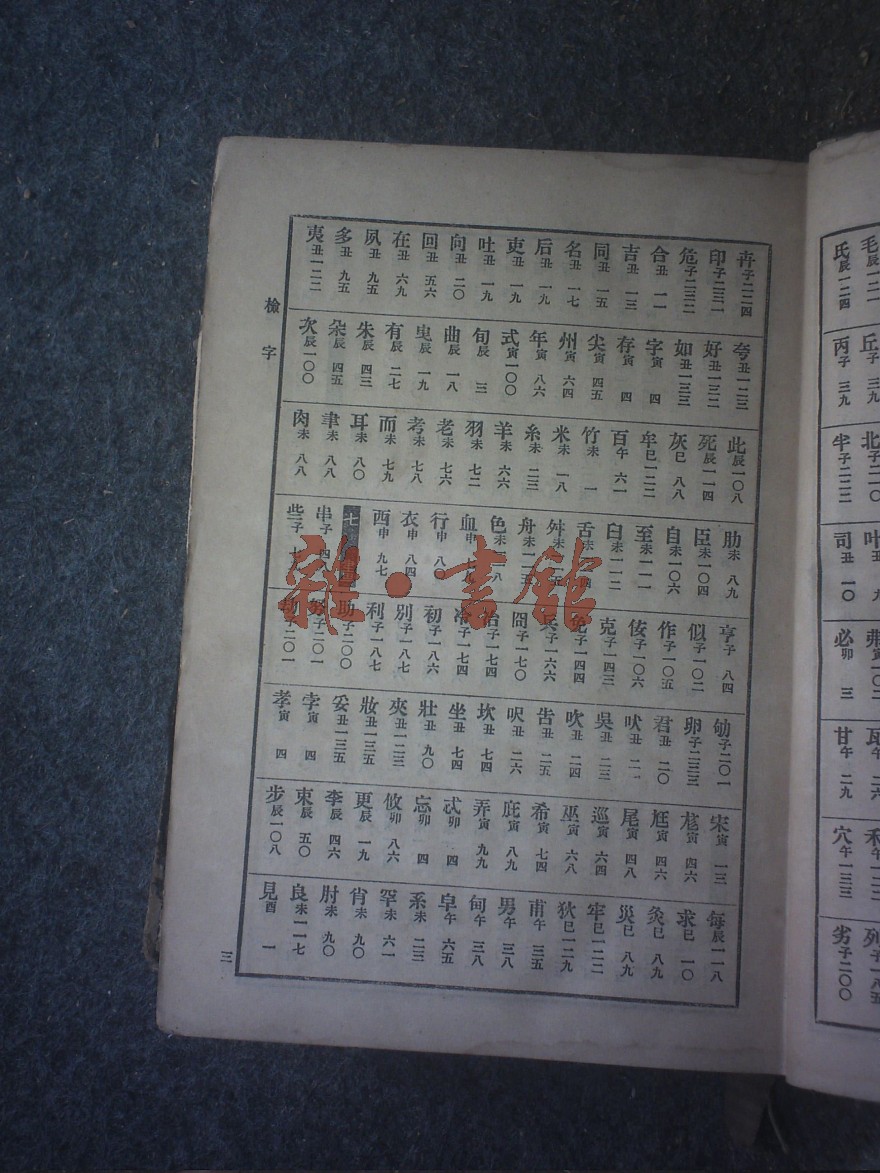 檢字
卉 子二二四
印 子二三一
危 子二三二
合 丑一一
吉 丑一三
同 丑一五
名 丑一七
后 丑一九
吏 丑一九
吐 丑一九
向 丑二〇
回 丑五六
在 丑六九
夙 丑九五
多 丑九五
夷 丑一二二
夸 丑一二三
好 丑一三二
如 丑一三三
字 寅四
存 寅四
尖 寅四五
州 寅六四
年 寅八六
式 寅一〇〇
旬 辰三
曲 辰一八
曳 辰一九
有 辰二七
朱 辰四三
朵 辰四五
次 辰一〇〇
此 辰一〇八
死 辰一一四
灰 巳八八
牟 巳一二二
百 午六一
竹 未一
米 未一八
糸 未二三
羊 未六六
羽 未七二
老 未七六
考 未七八
而 未七九
耳 未八〇
聿 未八八
肉 未八八
肋 未八九
臣 未一〇四
自 未一〇六
至 未一一一
臼 未一一二
舌
舛
舟
色
血
行 申八〇
衣 申八四
西 申九七
七
串 子四
些
亨 子八四
似 子一〇二
作 子一〇五
佞 子一〇六
克 子一四三
免 子一四四
兵 子一六六
囧 子一七〇
冶 子一七四
冷 子一七四
初 子一八六
別 子一八七
利 子一八七
助 子二〇〇
努 子二〇一
劫 子二〇一
劬 子二〇一
卵 子二三三
君 丑二〇
吠 丑二一
吳 丑二三
吹 丑二四
告 丑二五
呎 丑二六
坎 丑七四
坐 丑七四
壯 丑九〇
夾 丑一二三
妝 丑一三五
妥 丑一三五
孛 寅四
孝 寅四
宋 寅一三
尨 寅四六
尫 寅四六
尾 寅四八
巡 寅六四
巫 寅六八
希 寅七四
庇 寅八九
弄 寅九九
忒 卯四
忘 卯四
攸 卯八六
更 辰一九
李 辰四六
束 辰五〇
步 辰一〇八
每 辰一一八
求 巳一〇
灸 巳八九
災 巳八九
牢 巳一二二
狄 巳一二九
甫 午三五
男 午三八
甸 午三八
皁 午六五
系 未二三
罕 未六一
肖 未九〇
肘 未九〇
良 未一一七
見 酉一
三
毛 辰一二一
氏 辰一二四
丘 子三九
丙 子三九
司 丑一〇
必 卯三
甘 午二九
穴 午一三三
劣 子二〇〇
雜·書館